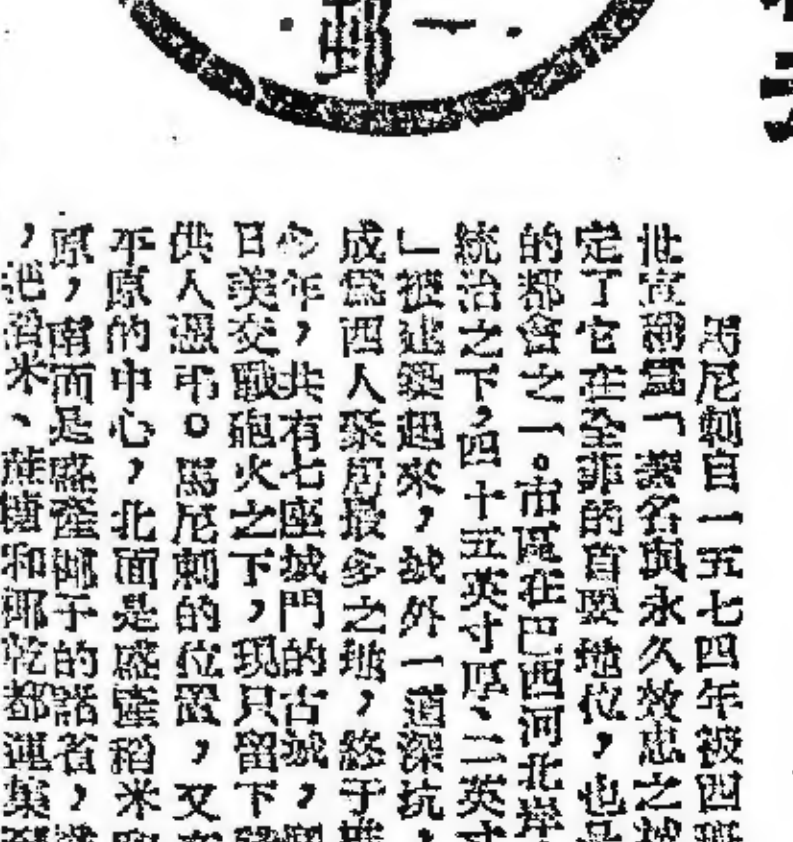 一郵
馬尼剌自一五七四年被西班
世宣稱爲「著名與永久效忠之城
定了它在全菲的首要地位，也是
的都會之一。市區在巴西河北岸
統治之下，四十五英寸厚、二英寸
」被建築起來，城外一道深坑，
成爲西人聚居最多之地，終于
年，共有七座城門的古城，
日美交戰砲火之下，現只留下
供人憑弔。馬尼剌的位置，又
平原的中心，北面是盛產稻米
原，南面是盛產椰子的諸省，
，把稻米、蔴、糖和椰乾都運集